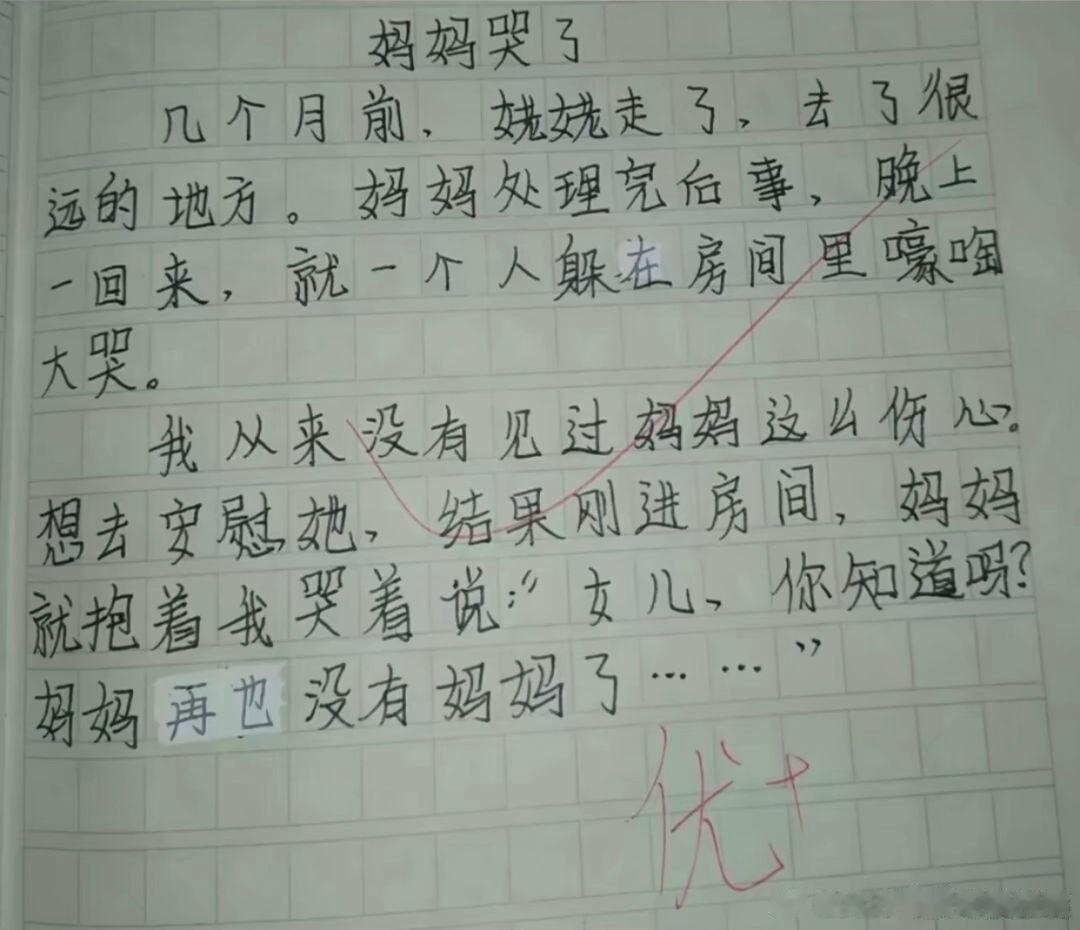 妈妈哭了
几个月前，姥姥走了，去了很
远的地方。妈妈处理完后事，晚上
一回来，就一个人躲在房间里嚎啕
大哭。
我从来没有见过妈妈这么伤心。
想去安慰她，结果刚进房间，妈妈
就抱着我哭着说：“女儿，你知道吗？
妈妈再也没有妈妈了……”
优+